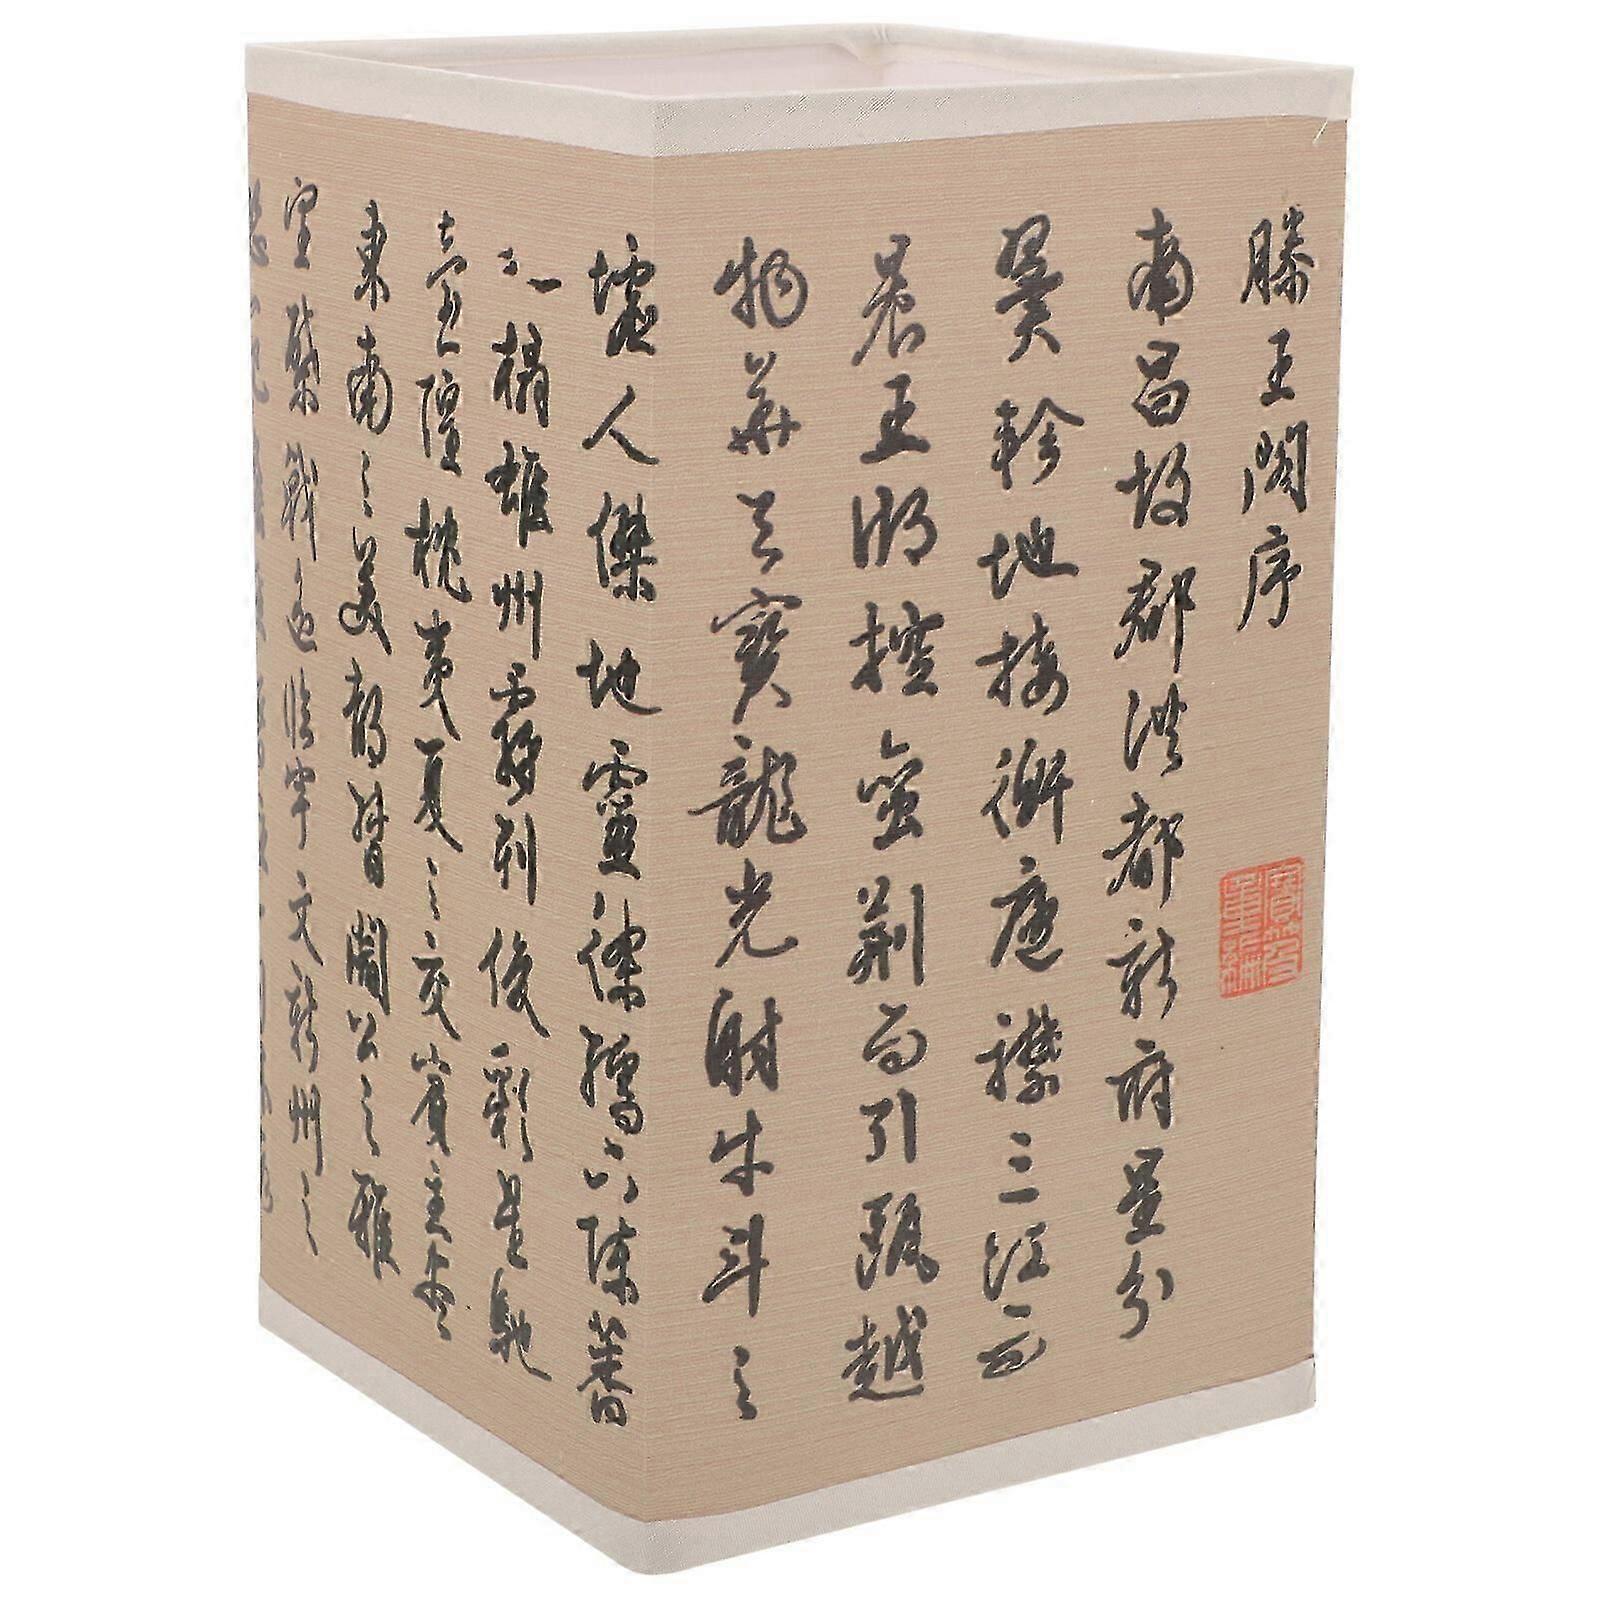 滕王閣序
南昌故郡洪都新府星分
翼軫地接衡廬襟三江而
帶五湖控蠻荊而引甌越
物華天寶龍光射牛斗之
墟人傑地靈徐孺下陳蕃
之榻雄州霧列俊彩星馳
臺隍枕夷夏之交賓主盡
東南之美都督閻公之雅
望棨戟遙臨宇文新州之